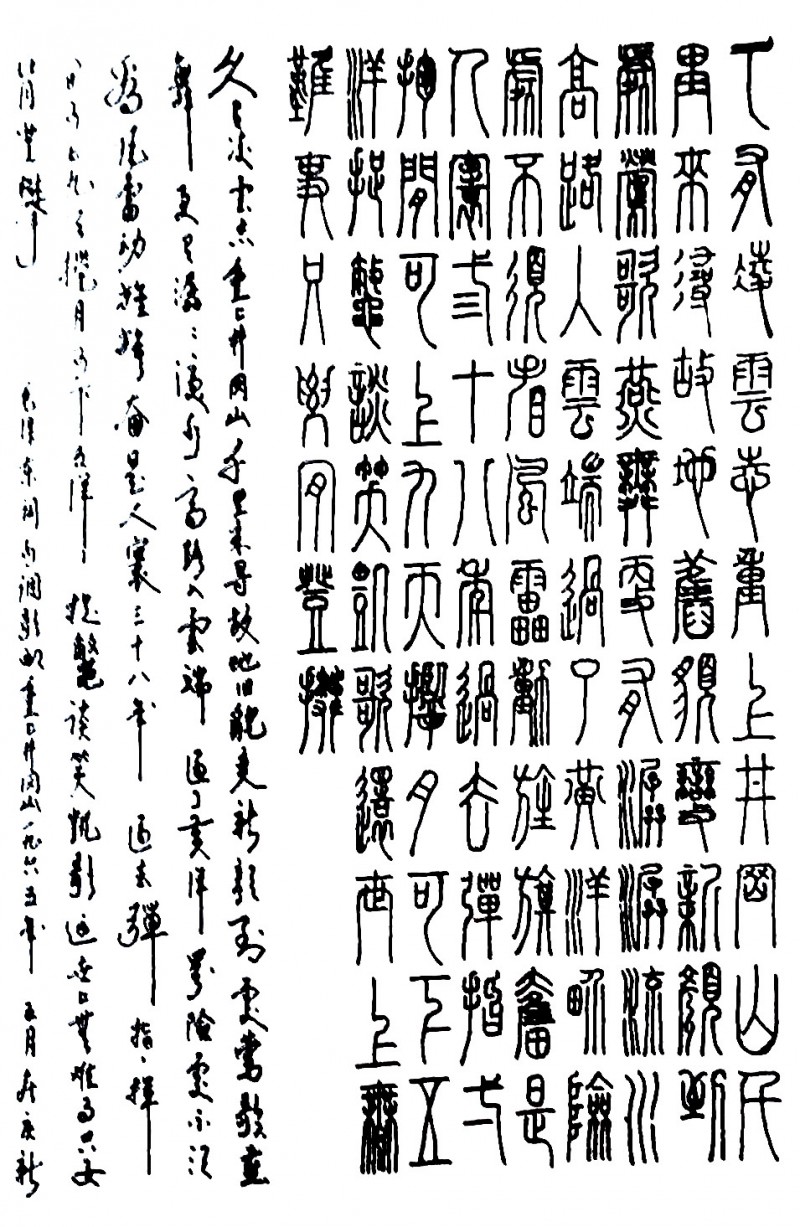 久有凌雲志重上井岡山千
里來尋故地舊貌變新顏到
處鶯歌燕舞更有潺潺流水
高路入雲端過了黃洋界險
處不須看風雷動旌旗奮是
人寰三十八年過去彈指一
揮間可上九天攬月可下五
洋捉鱉談笑凱歌還世上無
難事只要肯登攀
久有凌雲志重上井岡山千里来尋故地旧貌變新顏到處鶯歌燕
舞更有潺々流水高路入雲端過了黄洋界險處不須
看風雷動旌旗奮是人寰三十八年過去彈指一揮
間可上九天攬月可下五洋捉鱉談笑凱歌還世上無難事只要
肯登攀 毛澤東詞水調歌頭重上井岡山一九六五年五月